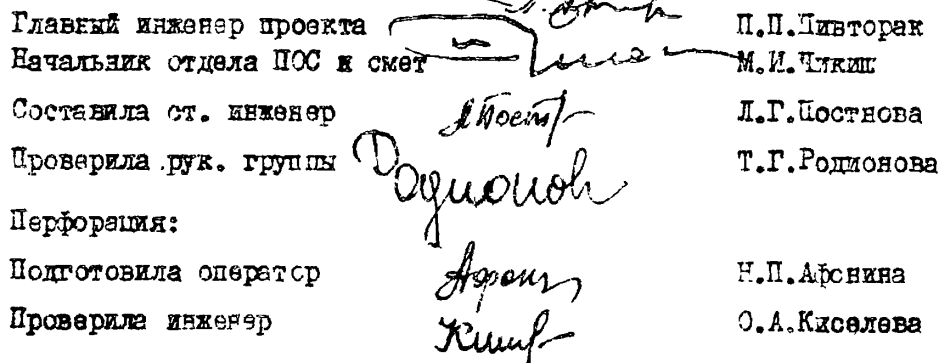 Главный инженер проекта П.П.Пивторак
Начальник отдела ПОС и смет М.И.Чикиш
Составила ст. инженер Л.Г.Постнова
Проверила рук. группы Родионов Т.Г.Родионова
Перфорация:
Подготовила оператор Н.П.Афонина
Проверила инженер О.А.Киселева